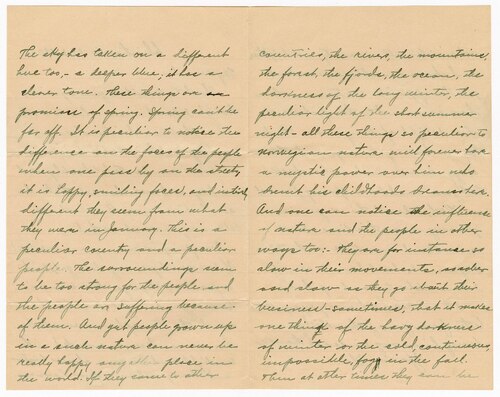 The sky has taken on a different
hue too, - a deeper blue, it has a
clearer tone. These things are an
promise of spring. Spring can't be
far off. It is peculiar to notice the
difference on the faces of the people
when one pass by on the streets,
it is happy, smiling faces, and
different they seem from what
they were in January. This is a
peculiar country and a peculiar
people. The surroundings seem
to be too strong for the people and
the people are suffering because
of them. And yet people grown up
in a such nature can never be
really happy any other place in
the world. If they come to other
countries, the rivers, the mountains,
the forest, the fjords, the ocean, the
darkness of the long winter, the
peculiar light of the short summer
night - all these things so peculiar to
norwegian nature will forever have
a mystic power over him who
spent his childhoods years there.
And one can notice the influence
of nature and the people in other
ways too: - They are for instance so
slow in their movements, so
and slow as they go about their
business - sometimes, that it makes
one think of the heavy darkness
of winter or the cold, continuous,
impossible fog in the fall.
Then at other times they can be